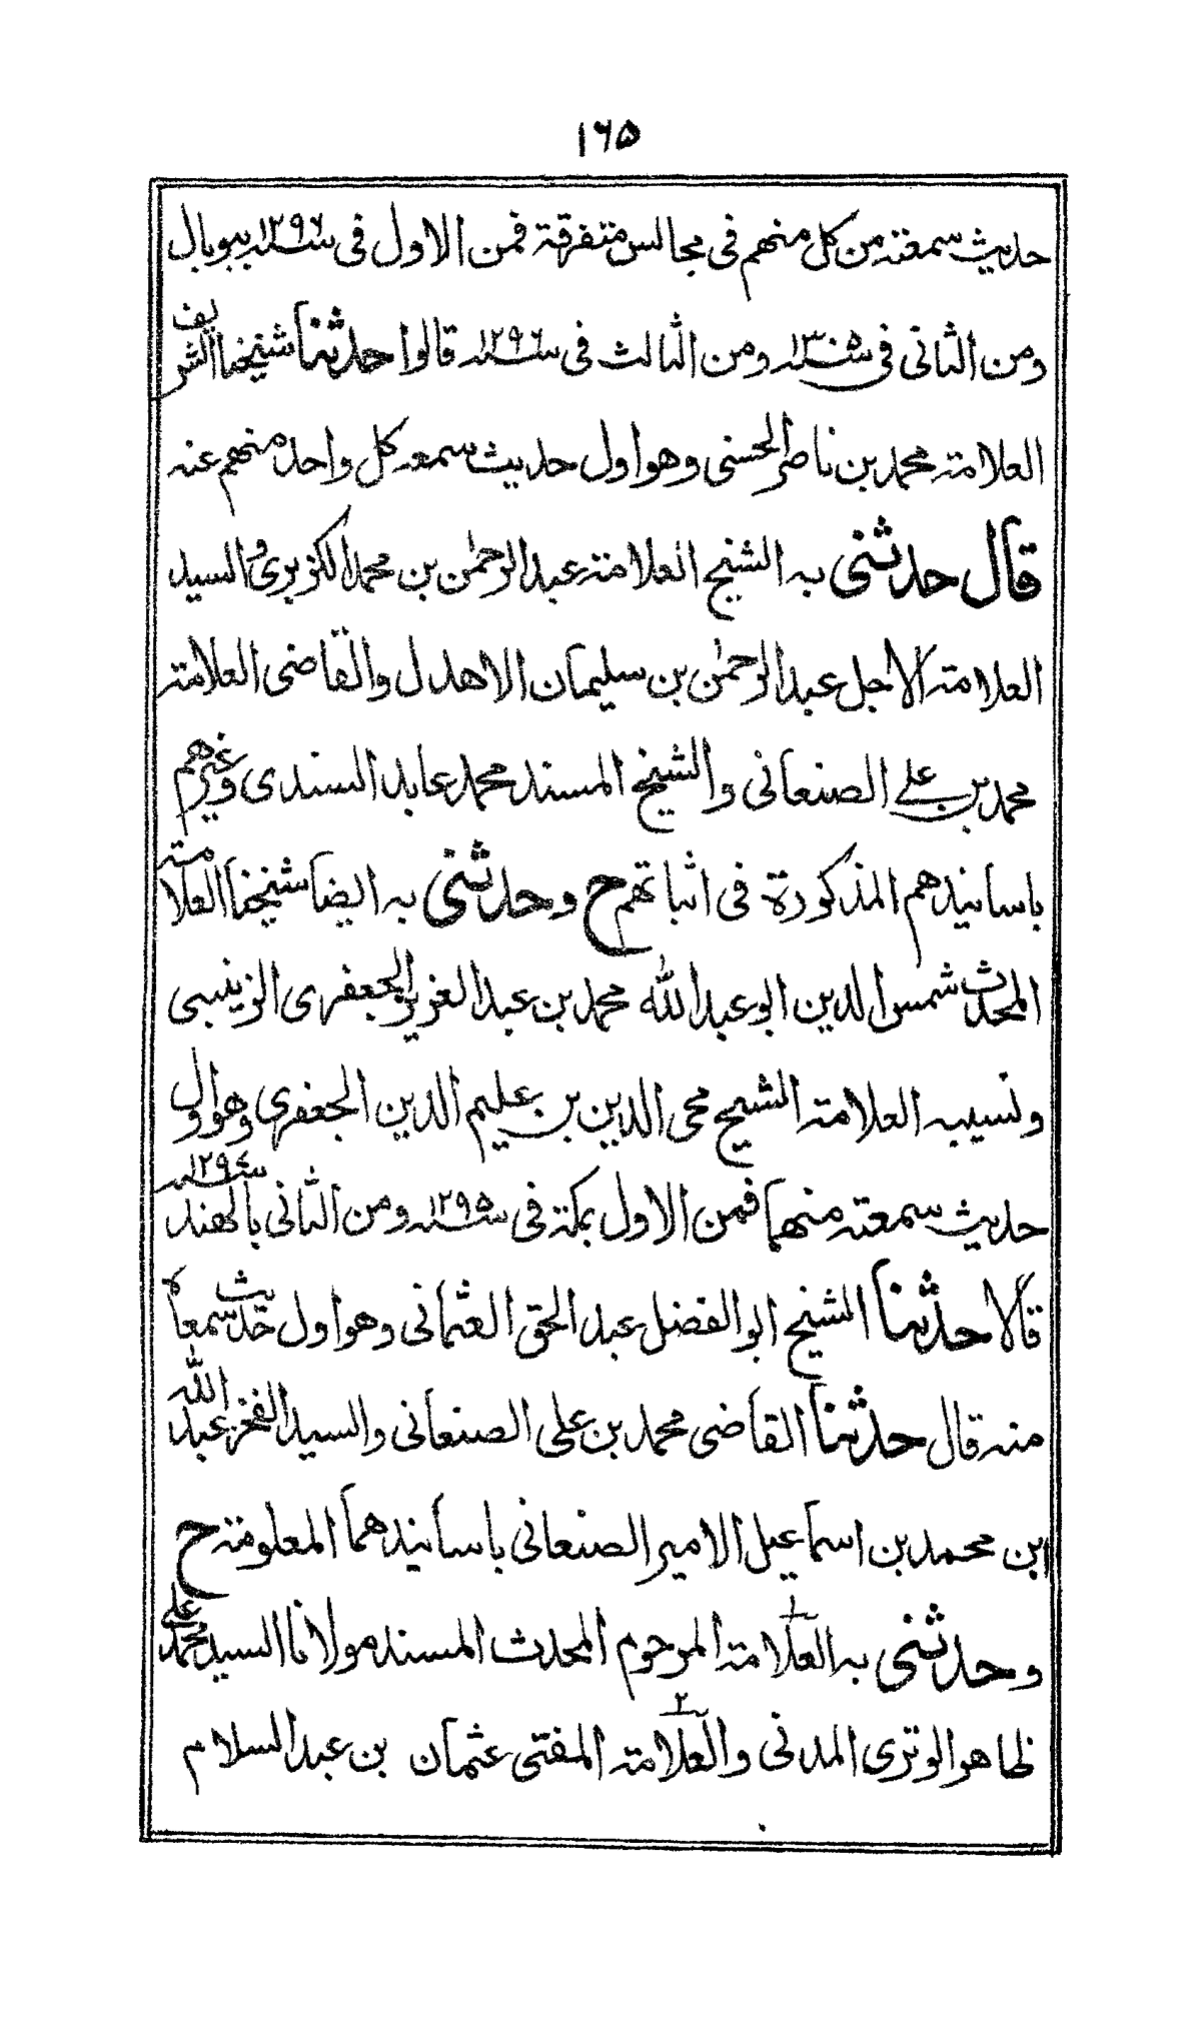 ١٦٥
حديث سمعته من كل منهم فى مجالس متفرقة فمن الاول فى سنه ١٢٩٦ ببوبال
ومن الثانى فى سنه ١٣٠٥ ومن الثالث فى سنه ١٢٩٦ قالوا حدثنا شيخنا الشريف
العلامة محمد بن ناصر الحسنى وهو اول حديث سمعه كل واحد منهم عنه
قال حدثنى به الشيخ العلامة عبد الرحمٰن بن محمد الكزبرى والسيد
العلامة الاجل عبد الرحمٰن بن سليمان الاهدل والقاضى العلامة
محمد بن على الصنعانى والشيخ المسند محمد عابد السندى وغيرهم
باسانيدهم المذكورة فى اثباتهم ح وحدثنى به ايضا شيخنا العلامة
المحدث شمس الدين ابو عبد الله محمد بن عبد العزيز الجعفرى الزينبى
ونسيبه العلامة الشيخ محى الدين بن عليم الدين الجعفرى وهو اول
حديث سمعته منهما فمن الاول بمكة فى سنه ١٢٩٥ ومن الثانى بالهند سنه ١٢٩٤
قالا حدثنا الشيخ ابو الفضل عبد الحق العثمانى وهو اول حديث سمعاه
منه قال حدثنا القاضى محمد بن على الصنعانى والسيد الفخر عبد الله
ابن محمد بن اسماعيل الامير الصنعانى باسانيدهما المعلومة ح
وحدثنى به العلامة ١ المرحوم المحدث المسند مولانا السيد محمد على
ظاهر الوترى المدنى والعلامة ٢ المفتى عثمان بن عبد السلام